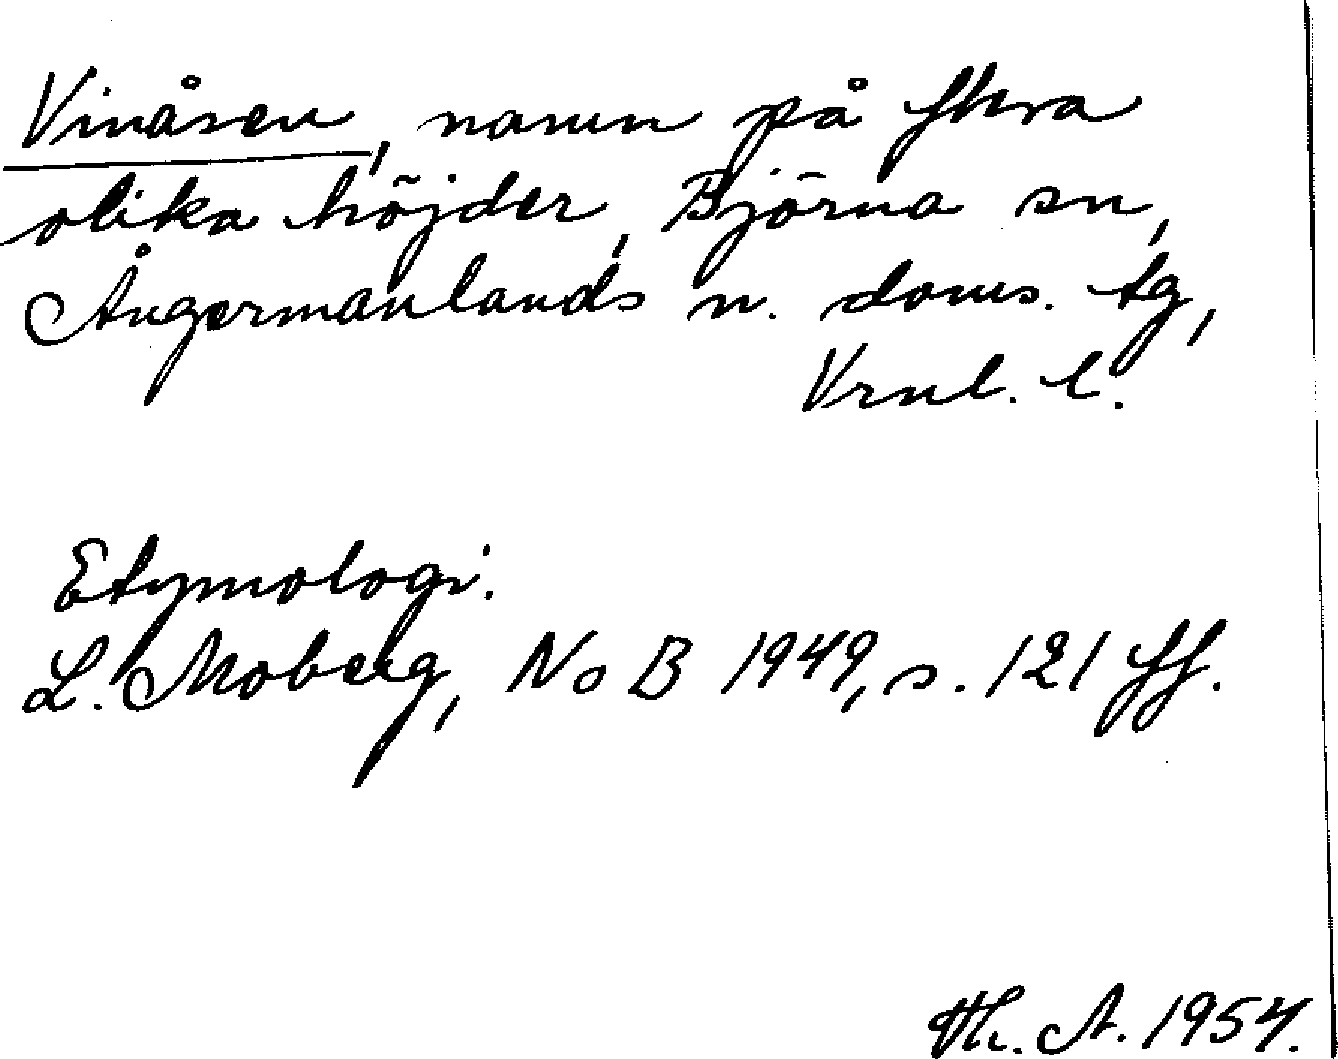 Vinåsen, namn på flera
olika höjder, Björna sn,
Ångermanlands n. doms. tg,
Vrnl. l.
Etymologi.
L. Moberg, NoB 1949, s. 121 ff.
Th. A. 1954.